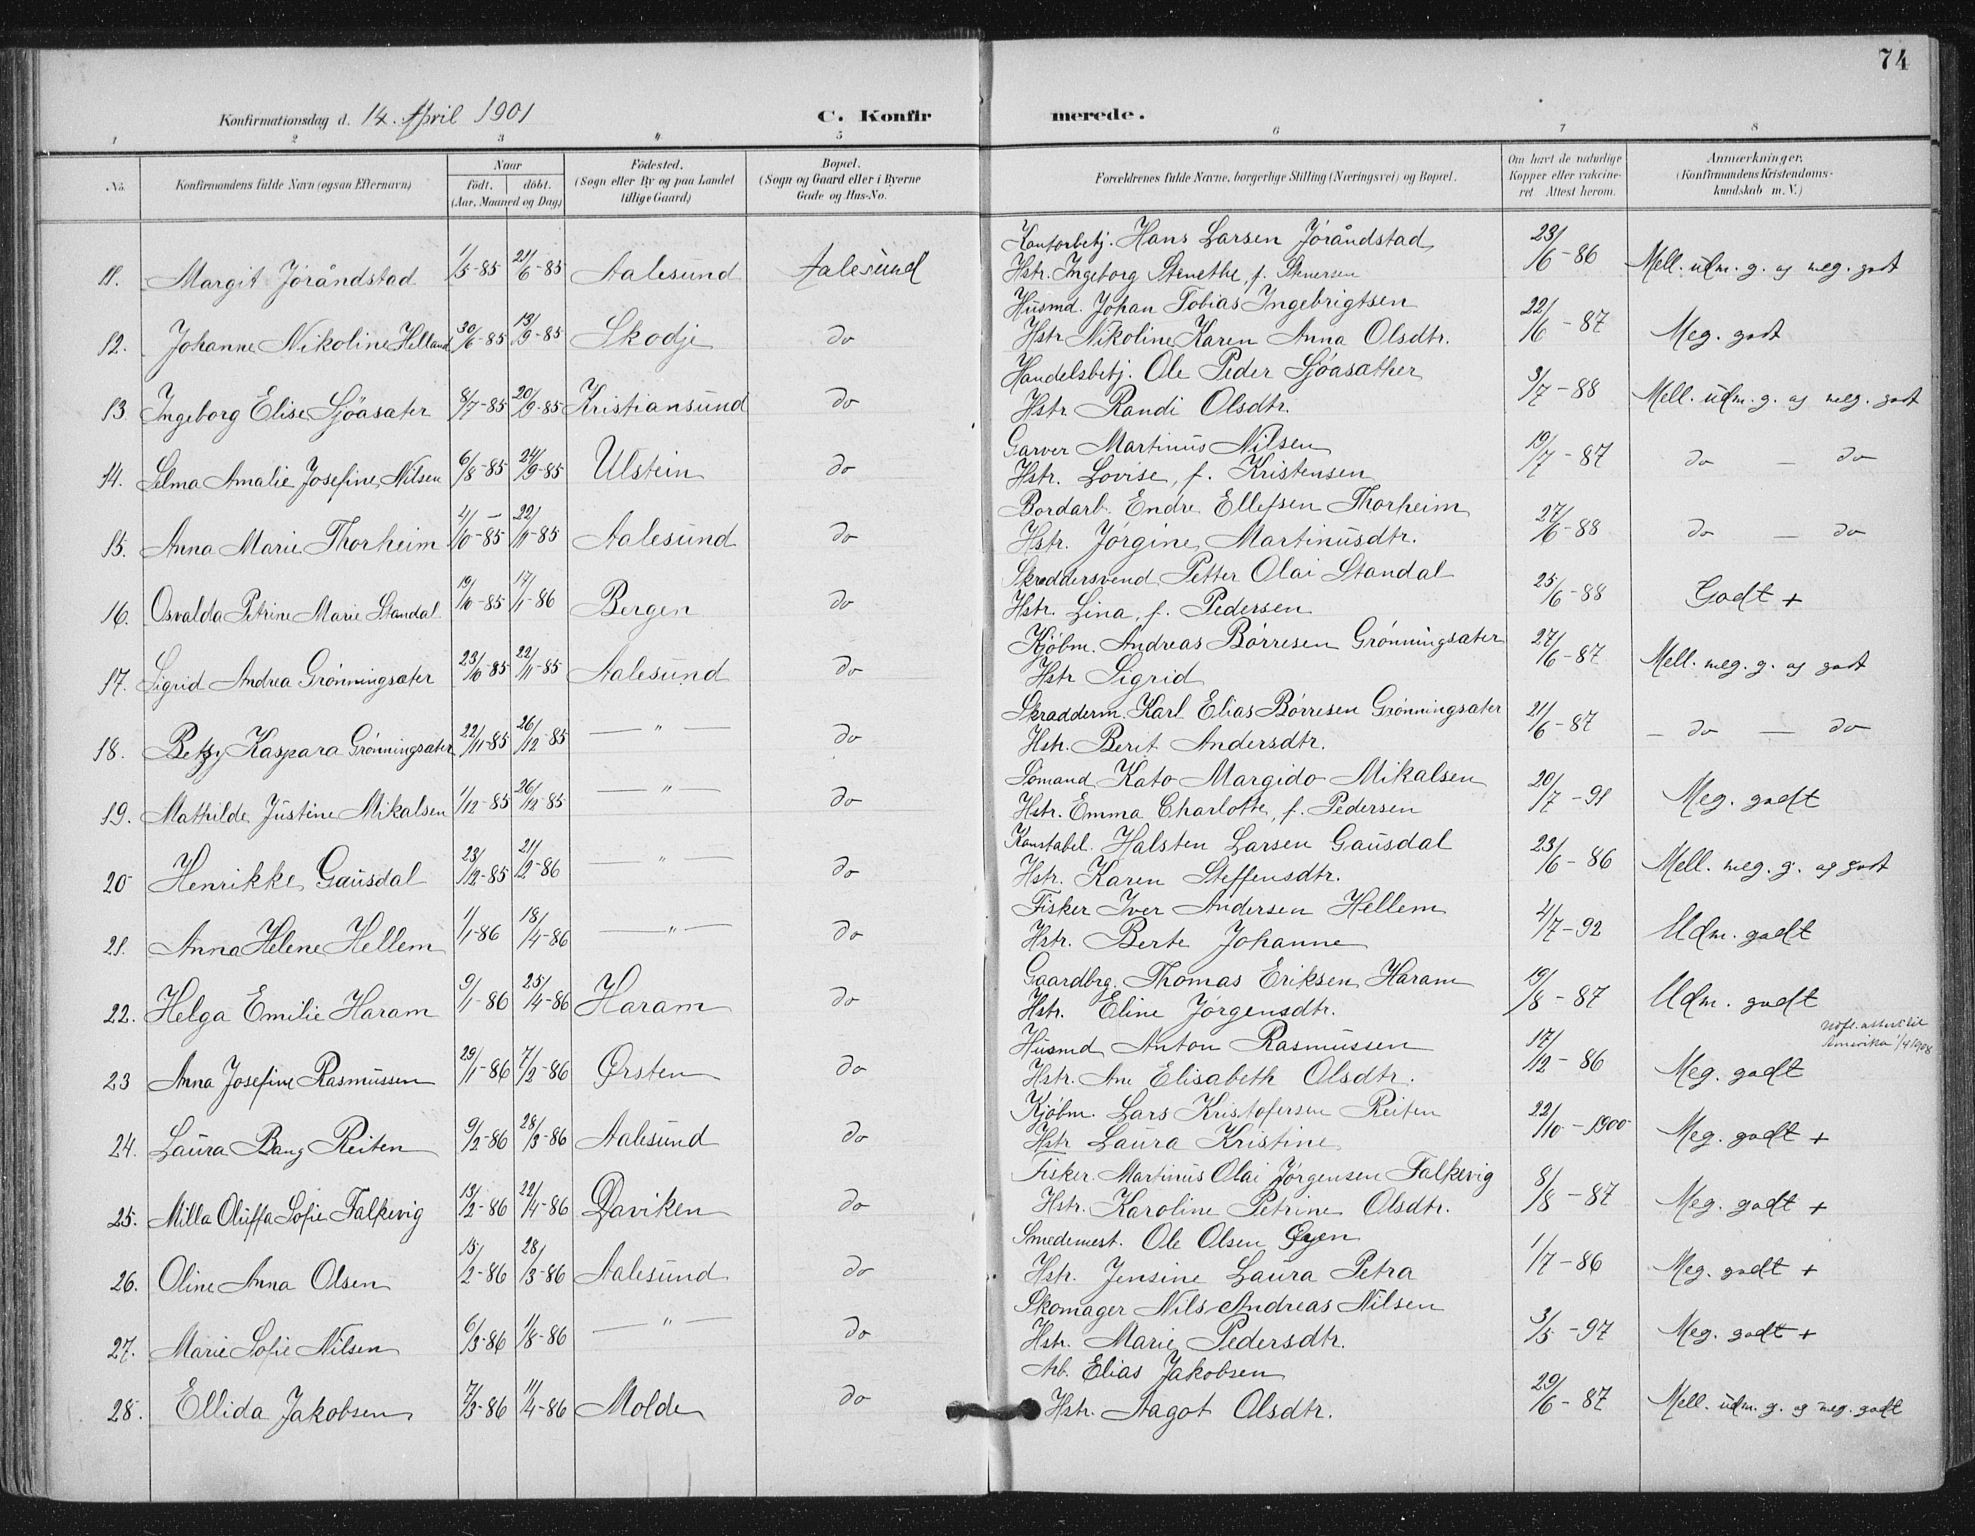 74
Konfirmationsdag d. 14. April 1901
C. Konfirmerede.
1 2 3 4 5 6 7 8
No. Konfirmandens fulde Navn (ogsaa Efternavn) Naar født. døbt. (Aar, Maaned og Dag) Fødested. (Sogn eller By og paa Landet tillige Gaard) Bopæl. (Sogn og Gaard eller i Byerne Gade og Hus-No. Forældrenes fulde Navne, borgerlige Stilling (Næringsvei) og Bopæl. Om havt de naturlige Kopper eller vakcineret. Attest herom. Anmærkninger. (Konfirmandens Kristendomskundskab m. V.)
11. Margit Jøråndstad 1/5-85 21/6-85 Aalesund Aalesund Kontorbetj. Hans Larsen Jøråndstad
Hstr. Ingeborg Stenethe, f. Stenersen 23/6-86 Mell. udm. g. og meg. godt
12. Johanne Nikoline Helland 30/6-85 13/9-85 Skodje do Husmd. Johan Tobias Ingebrigtsen
Hstr Nikoline Karen Anna Olsdtr. 22/6-87 Meg. godt
13 Ingeborg Elise Sjöasæter 8/7-85 20/9-85 Kristiansund do Handelsbetj. Ole Peder Sjöasæther
Hstr Randi Olsdtr. 3/7-88 Mell. udm. g. og meg. godt
14. Selma Amalie Josefine Nilsen 6/8-85 24/9-85 Ulstein do Garver Martinus Nilsen
Hstr. Lovise, f. Kristensen 19/7-87 do — do
15. Anna Marie Thorheim 4/10-85 22/11-85 Aalesund do Bordarb. Endre Ellefsen Thorheim
Hstr. Jørgine Martinusdtr. 27/6-88 do — do
16. Osvalda Petrine Marie Standal 19/10-85 17/1-86 Bergen do Skræddersvend Petter Olai Standal
Hstr. Lina, f. Pedersen 25/6-88 Godt +
17. Sigrid Andrea Grönningsæter 23/10-85 22/11-85 Aalesund do Kjøbm. Andreas Børresen Grönningsæter
Hstr Sigrid 27/6-87 Mell. meg. g. og godt
18. Betzy Kaspara Grönningsæter 22/11-85 26/12-85 — " — do Skrædderm. Karl Elias Børresen Grönningsæter
Hstr. Berit Andersdtr. 21/6-87 — do — do
19. Mathilde Justine Mikalsen 1/12-85 26/12-85 — " — do Sömand Kato Margido Mikalsen
Hstr. Emma Charlotte, f. Pedersen 20/7-91 Meg. godt
20 Henrikke Gausdal 23/12-85 21/2-86 — " — do Konstabel. Halsten Larsen Gausdal
Hstr. Karen Steffensdtr. 23/6-86 Mell. meg. g. og godt
21. Anna Helene Hellem 1/1-86 18/4-86 — " — do Fisker Iver Andersen Hellem
Hstr. Berte Johanne 4/7-92 Udm. godt
22. Helga Emilie Haram 9/1-86 25/4-86 Haram do Gaardbrg. Thomas Eriksen Haram
Hstr. Eline Jørgensdtr. 19/8-87 Udm. godt
23 Anna Josefine Rasmussen 29/1-86 7/2-86 Ørsten do Husmd Anton Rasmussen
Hstr. Ane Elisabeth Olsdtr. 17/12-86 Meg. godt Udfl. attest til
Amerika 1/4 1908
24. Laura Bang Reiten 9/2-86 28/3-86 Aalesund do Kjøbm. Lars Kristofersen Reiten
Hstr Laura Kristine 22/10-1900 Meg. godt +
25. Milla Oluffa Sofie Falkevig 13/2-86 22/4-86 Daviken do Fisker. Martinus Olai Jørgensen Falkevig
Hstr. Karoline Petrine Olsdtr. 8/8-87 Meg. godt +
26. Oline Anna Olsen 15/2-86 28/3-86 Aalesund do Smedemest. Ole Olsen Øyen
Hstr. Jensine Laura Petra 1/7-86 Meg. godt +
27. Marie Sofie Nilsen 6/3-86 1/8-86 — " — do Skomager Nils Andreas Nilsen
Hstr. Marie Pedersdtr. 3/5-97 Meg. godt +
28. Ellida Jakobsen 7/3-86 11/4-86 Molde do Arb. Elias Jakobsen
Hstr. Aagot Olsdtr. 29/6-87 Mell. udm. g. og meg. godt